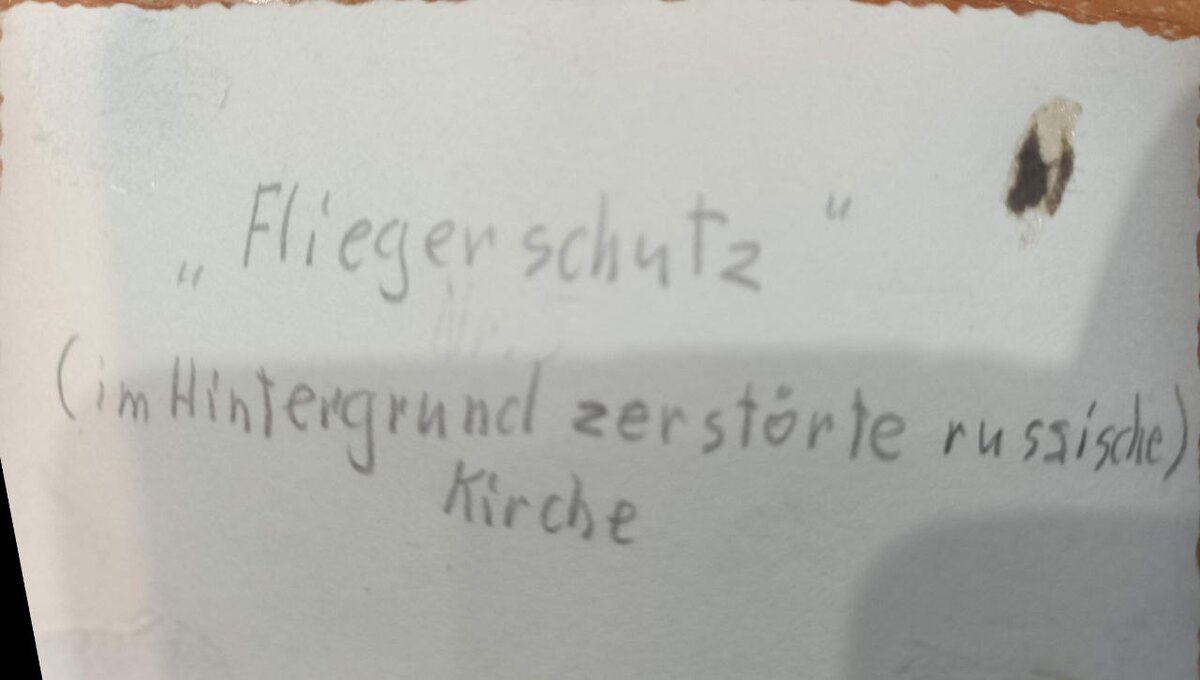 „Fliegerschutz“
(im Hintergrund zerstörte russische)
Kirche